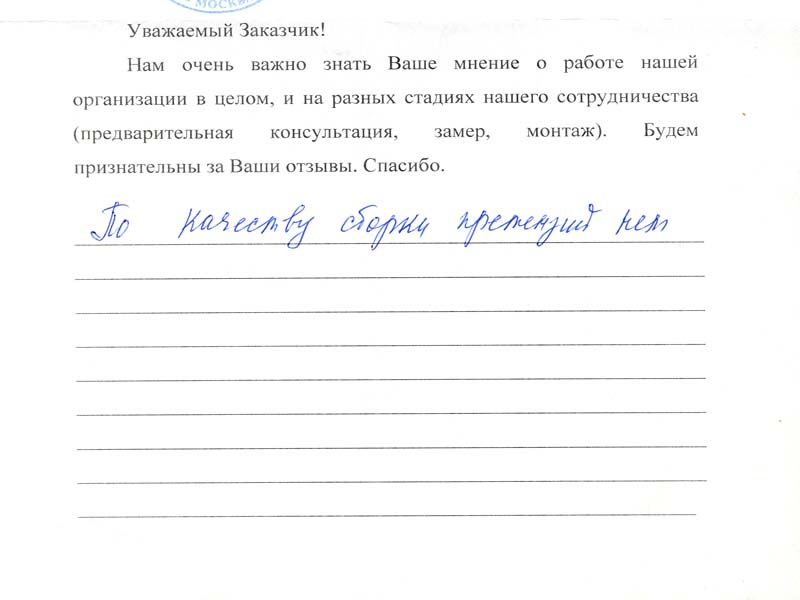 МОСКВА
Уважаемый Заказчик!
Нам очень важно знать Ваше мнение о работе нашей
организации в целом, и на разных стадиях нашего сотрудничества
(предварительная консультация, замер, монтаж). Будем
признательны за Ваши отзывы. Спасибо.
По качеству сборки претензий нет